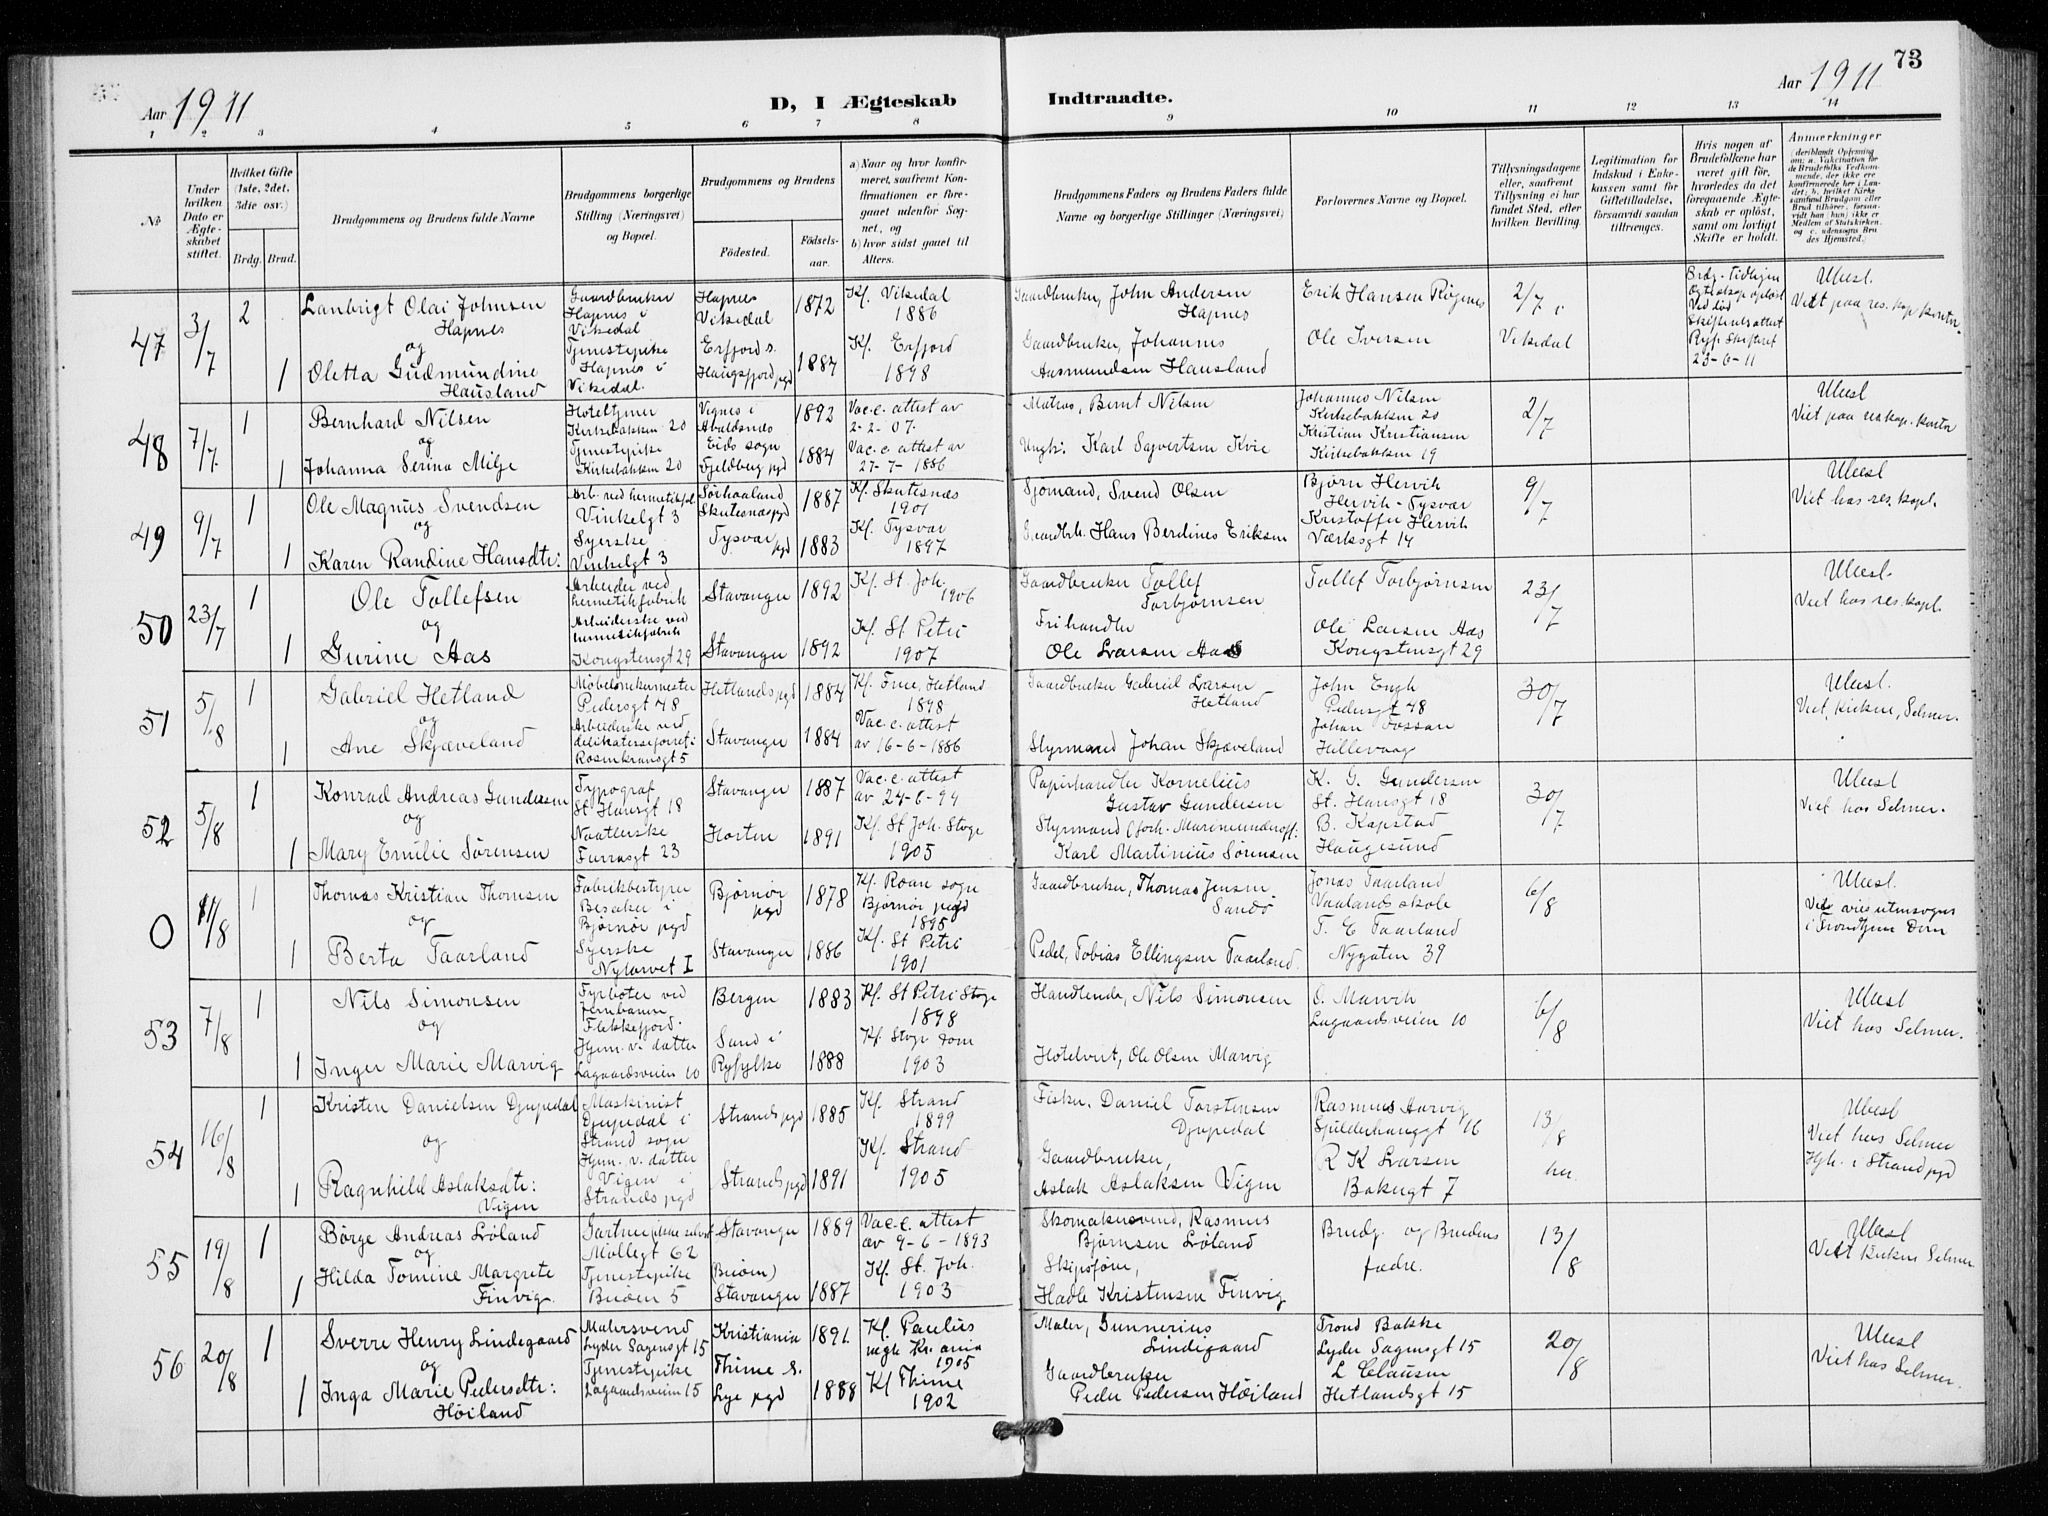 73
Aar 1911
D, I Ægteskab Indtraadte.
Aar 1911
1 2 3 4 5 6 7 8 9 10 11 12 13 14
No
Under hvilken Dato er Ægteskabet stiftet.
Hvilket Gifte (1ste, 2det, 3die osv.)
Brdg. Brud.
Brudgommens og Brudens fulde Navne
Brudgommens borgerlige Stilling (Næringsvei) og Bopæl.
Brudgommens og Brudens
Födested. Födselsaar.
a) Naar og hvor konfirmeret, saafremt Konfirmationen er foregaaet udenfor Sognet, og
b) hvor sidst gaaet til Alters.
Brudgommens Faders og Brudens Faders fulde Navne og borgerlige Stillinger (Næringsvei)
Forlovernes Navne og Bopæl.
Tillysningsdagene eller, saafremt Tillysning ei har fundet Sted, efter hvilken Bevilling.
Legitimation for Indskud i Enkekassen samt for Giftetilladelse, forsaavidt saadan tiltrænges.
Hvis nogen af Brudefolkene har været gift før, hvorledes da det foregaaende Ægteskab er oplöst, samt om lovligt Skifte er holdt.
Anmærkninger
47
3/7
2
Lanbrigt Olai Johnsen
Hapnes
og
1
Oletta Gudmundine
Hausland
Gaardbruker
Hapnes i
Vikedal
Tjenestepike
Hapnes i
Vikedal.
Hapnes
Vikedal
Erfjord s.
1872
1884
Kf. Vikedal
1886
Kf. Erfjord
1898
Gaardbruker, John Andersen
Hapnes
Gaardbruker, Johannes
Aasmundsen Hausland
Erik Hansen Røgnes
Ole Iversen
2/7 i
Vikedal
Brdg. tidligere
Ved død
23-6-11
Viet paa res. kap. kontor.
48
7/7
1
Bernhard Nilsen
og
1
Johanna Serina Milje
Hoteltjener
Kirkebakken 20
Tjenestepike
Kirkebakken 20
Eids sogn
Fjeldberg pgd
1892
1884
Vac. c. attest av
2-2-07.
Vac. c. attest av
27-7-1886
Matros, Bernt Nilsen
Ungk. Karl Sjovertsen Kvie
Johannes Nilsen
Kirkebakken 20
Kristian Kristiansen
Kirkebakken 19
2/7
Viet paa res. kap. kontor
49
9/7
1
Ole Magnus Svendsen
og
1
Karen Randine Hansdtr:
Arb. ved hermetikfab.
Vinkelgt 3
Syerske
Vinkelgt 3
Sørhaaland
Skutesnæs pgd
Tysvær
pgd
1887
1883
Kf. Skutesnæs
1901
Kf. Tysvær
1897
Sjømand, Svend Olsen
Gaardbr. Hans Berdines Eriksen
Bjørn Hervik
Hervik - Tysvær
Kristoffer Hervik
Værksgt 14
9/7
Viet hos res. kapl.
50
23/7
1
Ole Tollefsen
og
1
Gurine Aas
Arbeider ved
hermetikfabrik
Arbeiderske ved
hermetikfabrik
Kongstensgt 29
Stavanger
Stavanger
1892
1892
Kf. St. Joh.
1906
Kf. St Petri
1907
Gaardbruker Tollef
Torbjørnsen
Frihandler
Ole Larsen Aas
Tollef Torbjørnsen
Ole Larsen Aas
Kongstensgt 29
23/7
Viet hos res. kapl.
51
5/8
1
Gabriel Hetland
og
1
Ane Skjæveland
Møbelsnekermester
Pedersgt 48
Arbeiderske ved
delikatesseforret.
Rosenkransgt 5
Hetlands pgd
Stavanger
1884
1884
Kf. Frue, Hetland
1898
Vac. c. attest
av 16-6-1886
Gaardbruker Gabriel Larsen
Hetland
Styrmand Johan Skjæveland
John Engh
Pedersgt 48
Johan Fossan
Hillevaag
30/7
Viet, Kirken, Selmer.
52
5/8
1
Konrad Andreas Gundersen
og
1
Mary Emilie Sørensen
Typograf
St Hansgt 18
Naatlerske
Furrasgt 23
Stavanger
Horten
1887
1891
Vac. c. attest
av 24-6-94
Kf. St Joh. Stvgr
1905
Papirhandler Kornelius
Gustav Gundersen
Styrmand (forh. Marineunderoff:
Karl Martinius Sørensen
K. G. Gundersen
St. Hansgt 18
B. Kapstad
Haugesund
30/7
Viet hos Selmer.
0
11/8
1
Thomas Kristian Thomsen
og
1
Berta Taarland
Fabrikbestyrer
Besaker i
Bjørnør pgd
Syerske
Nylarvet I
Bjørnør
pgd
Stavanger
1878
1886
Kf. Roan sogn
Bjørnør pgd
1895
Kf. St Petri
1901
Gaardbruker, Thomas Jensen
Sandø
Pedel, Tobias Ellingsen Taarland.
Jonas Taarland
Vaalands skole
T. E Taarland
Nygaten 39
6/8
Viet utensogns
i Trondhjem Dom
53
7/8
1
Nils Simonsen
og
1
Inger Marie Marvig
Fyrbøter ved
Jernbanen
Flekkefjord.
Hjem. v. datter
Lagaardsveien 10
Bergen
Sand i
Ryfylke
1883
1888
Kf. St Petri Stvgr
1898
Kf. Stvgr Dom
1903
Handlende, Nils Simonsen
Hotelvert, Ole Olsen Marvig
O. Marvik
Lagaardsveien 10
6/8
Viet hos Selmer.
54
16/8
1
Kristen Danielsen Djupedal
og
1
Ragnhild Aslaksdtr:
Vigen
Maskinist
Djupedal i
Strand sogn
Hjem. v. datter
Vigen i
Strands pgd
Strands pgd
Strands pgd
1885
1891
Kf. Strand
1899
Kf. Strand
1905
Fisker, Daniel Torstensen
Djupedal
Gaardbruker,
Aslak Aslaksen Vigen
Rasmus Aarvig
Spilderhauggt 16
R K Larsen
Bakergt 7
13/8
her.
Viet hos Selmer
Hjh. i Strand pgd
55
19/8
1
Børge Andreas Løland
og
1
Hilda Tomine Margrete
Finvig.
Møllegt 62
Tjenestepike
Buøen 5
Stavanger
(Buøen)
Stavanger
1889
1887
Vac. c. attest
av 9-6-1893
Kf. St. Joh.
1903
Skomakersvend, Rasmus
Bjørnsen Løland
Skipsfører,
Hadle Kristensen Finvig
Brudg. og Brudens
fædre.
13/8
Viet Kirken Selmer.
56
20/8
1
Sverre Henry Lindegaard
og
1
Inga Marie Pedersdtr:
Høiland
Malersvend
Lyder Sagensgt 15
Tjenestepike
Lagaardsveien 15
Kristiania
Thime s.
Lye pgd
1891.
1888
Kf. Paulus
mgh Kr.ania
1905
Kf Thime
1902
Maler, Gunnerius
Lindegaard
Gaardbruker
Peder Pedersen Høiland
Trond Bakke
Lyder Sagensgt 15
L Clausen
Hetlandsgt 15
20/8
Viet hos Selmer.